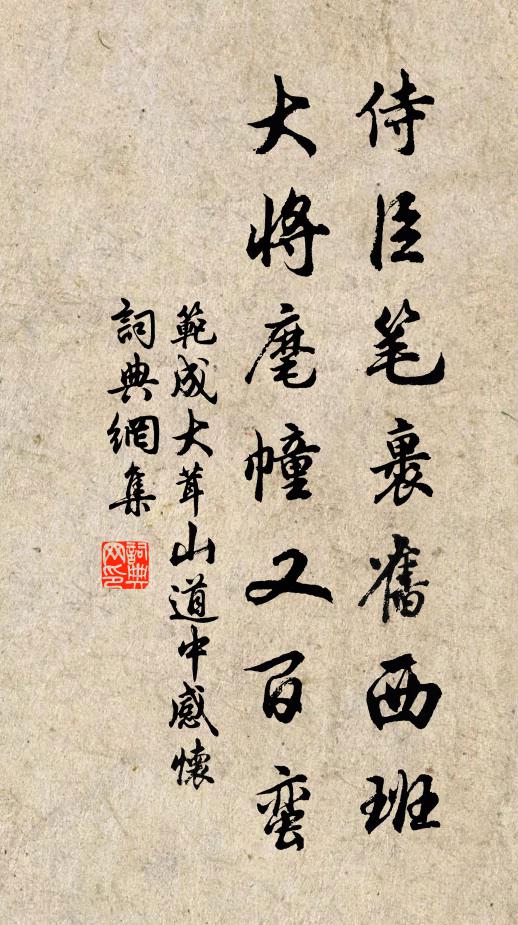 侍臣笔裹舊西班
大将麾幢又百蛮
範成大茸山道中感懷
詞典網集
詞典网印